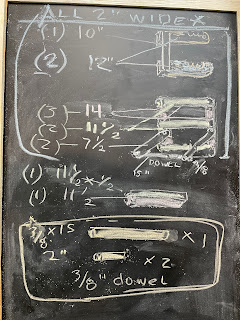 ALL 2" WIDE
(1) 10"
(2) 12"
(3) 14
(2) 11 1/2
(2) 7 1/2
DOWEL
15" 3/8
(1) 11 1/2 x 1/2
(1) 11 1/2
3/8 x 15 x 1
2" x 2
3/8" dowel